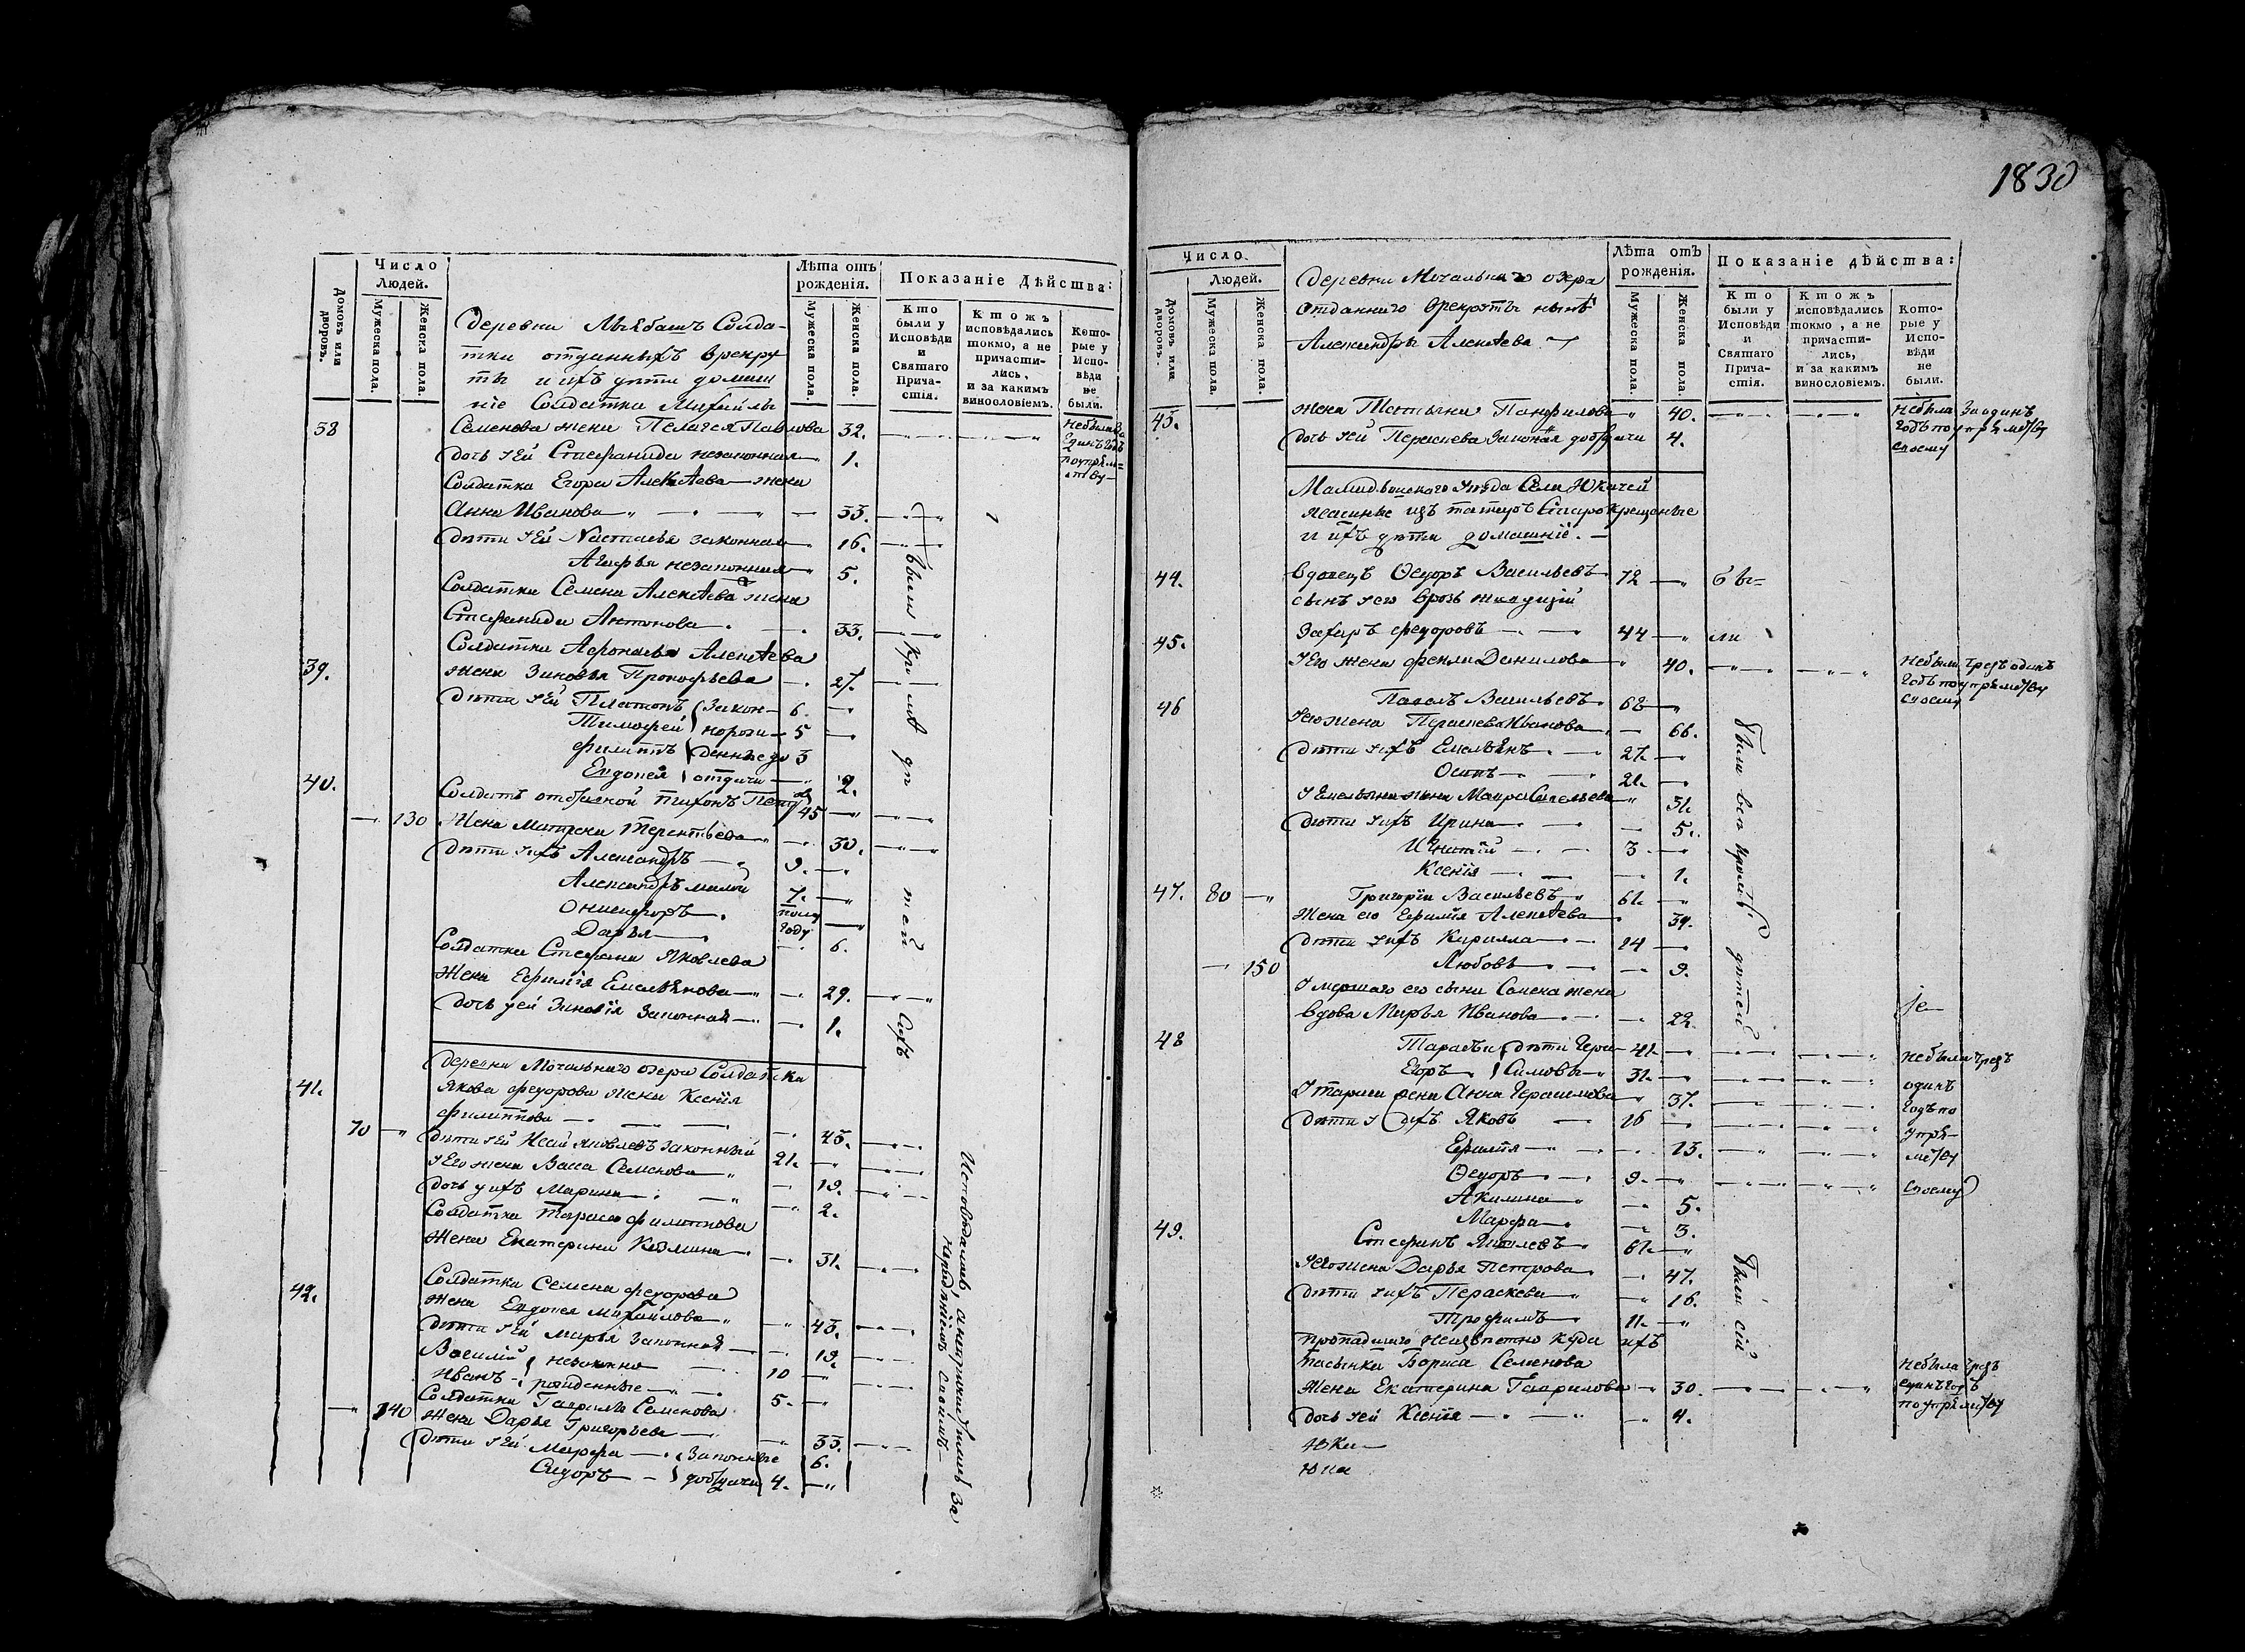 Число
Людей.
Домовъ или дворовъ.
Мужеска пола.
Женска пола.
Лѣта отъ рожденія.
Мужеска пола.
Женска пола.
Показаніе Дѣйства:
Кто были у Исповѣди и Святаго Причастія.
Ктожъ исповѣдались токмо, а не причастились, и за какимъ винословіемъ.
Которые у Исповѣди не были.
Деревни Солда-
тки отданныхъ врекру
ты и ихъ дѣти домаш
ніе Солдатки Михайлы
38 Семенова жена Пелагея Павлова 32. небыла
дочь ѣей Стефанида незаконная 1.
Солдатка Егора Алексѣева жена
Анна Иванова 33.
Дѣти ѣей Настасья законная 16.
Агафья незаконная 5.
Солдатки Семена Алексѣева жена
Стефанида Антонова 33.
Солдатки Афонасья Алексѣева
39. жена Зиновья Прокофьева 27.
дѣти ѣей Платонъ (закон- 6.
Тимофей норож- 5
Филиппъ денные до 3
Евдокея отдачи 2.
40. Солдатъ Тихонъ 45
130 Жена Матрена Терентьева 30.
Дѣти ѣихъ Александръ 9.
Александръ малой 7.
Онисифоръ полу году
Дарья 6.
Солдатки Стефана Яковлева
Жена Ефимія Емельянова 29.
дочь ѣей Зиновія Законная 1.
Были кромѣ дѣ тей сихъ
Деревни Мочальнаго озера Солдатки
41. Якова Федорова жена Ксенія
Филиппова 43.
70 Дѣти ѣей Исай Яковлевъ законный 21.
ѣего жена Васса Семенова 19.
дочь ѣихъ Марина 2.
Солдатка Тараса Филиппова
Жена Екатерина Козмина 31.
Солдатки Семена Федорова
42. Жена Евдокея Михайлова 43.
Дѣти ѣей Марья Законная 19.
Василій незаконно 10
Иванъ рожденные 5.
Солдатки Гаврилы Семенова
140 Жена Дарья Григорьева 33.
Дѣти ѣей Марфа Законные 6.
Сидоръ доотдачи 4.
Исповѣдались, анепричастились За нерадѣніемъ своимъ
1830
Число
Людей.
Домовъ или дворовъ.
Мужеска пола.
Женска пола.
Лѣта отъ рожденія.
Мужеска пола.
Женска пола.
Показаніе дѣйства:
Кто были у Исповѣди и Святаго Причастія.
Ктожъ исповѣдались токмо, а не причастились, и за какимъ винословіемъ.
Которые у Исповѣди не были.
Деревни Мочальнаго озера
отданнаго врекруты
Александры Алексѣева
43. жена Татьяна Панфилова 40. небыла За одинъ
Годъ по упрямству
своему
дочь ѣей Параскева Законная доотдачи 4.
Мамадышскаго уѣзда Села Юкачей
ясашные изъ татаръ Старокрещеные
и ихъ дѣти домашніе.
44. вдовецъ Ѳедоръ Васильевъ 72 бы-
сынъ ѣего врозь живущій
45. Захаръ Федоровъ 44 ли
ѣего жена Фекла Данилова 40. небыла чрезъ одинъ
Годъ по упрямству
своему
46 Павелъ Васильевъ 68
ѣего жена Параскева Иванова 66.
Дѣти ѣихъ Емельянъ 27.
Осипъ 21.
ѣЕмельяна жена Мавра Савельева 31.
Дѣти ѣихъ Ирина 5.
Игнатій 3
Ксенія 1.
47. 80 Григорій Васильевъ 61.
Жена его Ефимія Алексѣева 39.
Дѣти ѣихъ Кирилла 14
150 Любовь 9.
умершаго его сына Савка жена
вдова Марья Иванова 22.
Были всѣ кромѣ дѣтей
48 Тарасъ и дѣти Гера- 41.
Егоръ Симовы 31.
ѣТараса жена Анна Герасимова 37.
Дѣти ѣихъ Яковъ 16
Ефимія 13.
Ѳедоръ 9.
Акилина 5.
Марфа 3.
небыли чрезъ
одинъ
Годъ по
упря-
мству
своему
49. Стефанъ Яковлевъ 61.
ѣего жена Дарья Петрова 47.
Дѣти ѣихъ Параскева 16.
Трофимъ 11.
Были сіи
пропадшаго неизвѣстно куда ихъ
пасынка Бориса Семенова
Жена Екатерина Гаврилова 30. небыла чрезъ
единъ Годъ
по упрямству
дочь ѣей Ксенія 4.